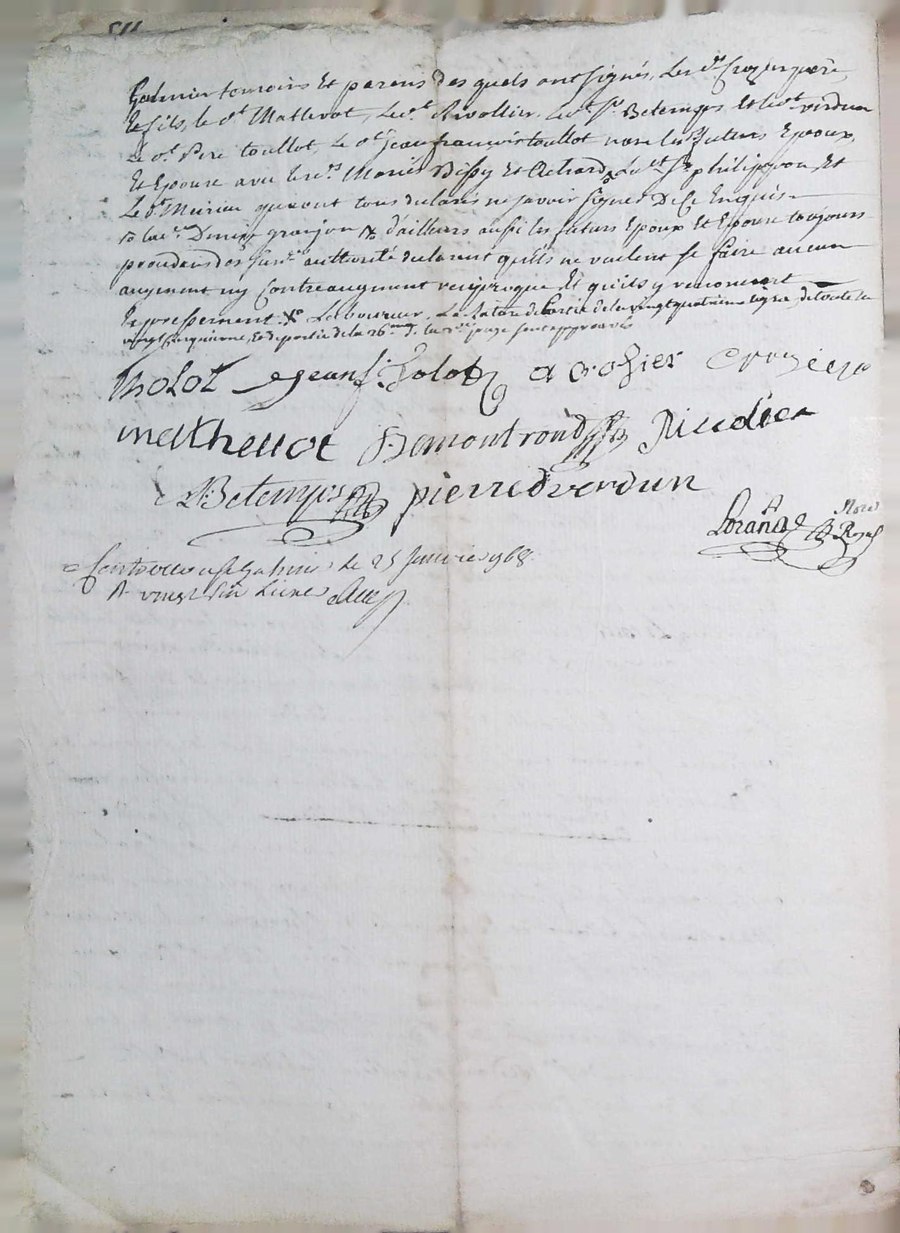 Galmier temoins Et parens des quels ont signés, Les dt Crozier pere
Et fils, le dt Mathevot, Le dt Rivollier, Le dt Sr Betemps Et le dt verdun
Le dt Pere toullot, Le dt Jean francois toullot non les futurs Epoux
Et Epouse avec les ds Mariés Bissy Et Achard, Le dt Sr philippon Et
Le dt Murieu qui ont tous declarés ne savoir signer De ce Enquis
Denize granjon d'ailleurs aussi les futurs Epoux Et Epouse toujours
procedans des susd authorité declarent quils ne veulent se faire aucun
augment ny Contreaugment reciproque Et qu'ils y renoncent
Expressement Laboureur, La Rature de partie de la vingt quatrieme ligne, de toute la
vingt cinquieme, et de partie de la 26me de la page sont approuvés
tholot Jean f. tolot a crozier Crozier
matheuot Demontrond
Betemps pierre verdun
Lorange Nore Royal
Controllé a St Galmier le 25 Janvier 1768
R vingt six livres